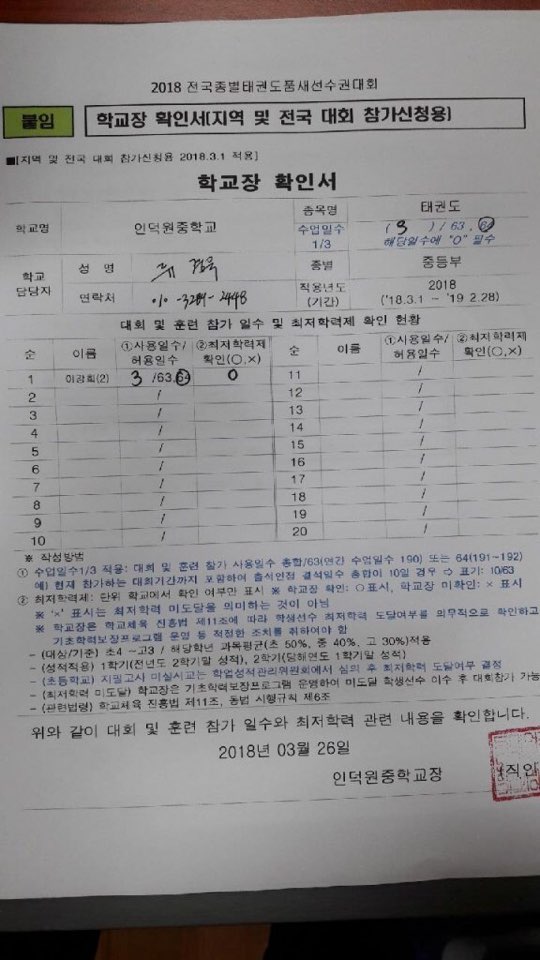 2018 전국종별태권도품새선수권대회
붙임 학교장 확인서(지역 및 전국 대회 참가신청용)
■[지역 및 전국 대회 참가신청용 2018.3.1 적용]
학교장 확인서
학교명 인덕원중학교 종목명 태권도
수업일수 1/3 ( 3 ) / 63, 64
해당일수에 "O" 필수
학교 담당자 성 명 종별 중등부
연락처 010-3289-2448 적용년도 (기간) 2018 ('18.3.1 ~ '19 2.28)
대회 및 훈련 참가 일수 및 최저학력제 확인 현황
순 이름 ①사용일수/허용일수 ②최저학력제 확인(○,×) 순 이름 ①사용일수/허용일수 ②최저학력제 확인(○,×)
1 이강희(2) 3 /63,64 O 11 /
2 / 12 /
3 / 13 /
4 / 14 /
5 / 15 /
6 / 16 /
7 / 17 /
8 / 18 /
9 / 19 /
10 / 20 /
※ 작성방법
① 수업일수1/3 적용: 대회 및 훈련 참가 사용일수 총합/63(연간 수업일수 190) 또는 64(191~192)
예) 현재 참가하는 대회기간까지 포함하여 출석인정 결석일수 총합이 10일 경우 ⇨ 표기: 10/63
② 최저학력제: 단위 학교에서 확인 여부만 표시 ※ 학교장 확인: ○표시, 학교장 미확인: × 표시
※ '×' 표시는 최저학력 미도달을 의미하는 것이 아님
※ 학교장은 학교체육 진흥법 제11조에 따라 학생선수 최저학력 도달여부를 의무적으로 확인하고
기초학력보장프로그램 운영 등 적정한 조치를 취하여야 함
- (대상/기준) 초4 ~고3 / 해당학년 과목평균(초 50%, 중 40%, 고 30%)적용
- (성적적용) 1학기(전년도 2학기말 성적), 2학기(당해연도 1학기말 성적)
- (초등학교) 지필고사 미실시교는 학업성적관리위원회에서 심의 후 최저학력 도달여부 결정
- (최저학력 미도달) 학교장은 기초학력보장프로그램 운영하여 미도달 학생선수 이수 후 대회참가 가능
- (관련법령) 학교체육 진흥법 제11조, 동법 시행규칙 제6조
위와 같이 대회 및 훈련 참가 일수와 최저학력 관련 내용을 확인합니다.
2018년 03월 26일
인덕원중학교장 (직인